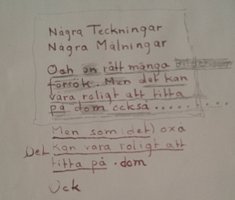 Några Teckningar
Några Målningar
Och en rått många
försök. Men det kan
vara roligt att titta
på dom också..........
Men som (det) oxa
Det kan vara roligt att
titta på . dom
Ock